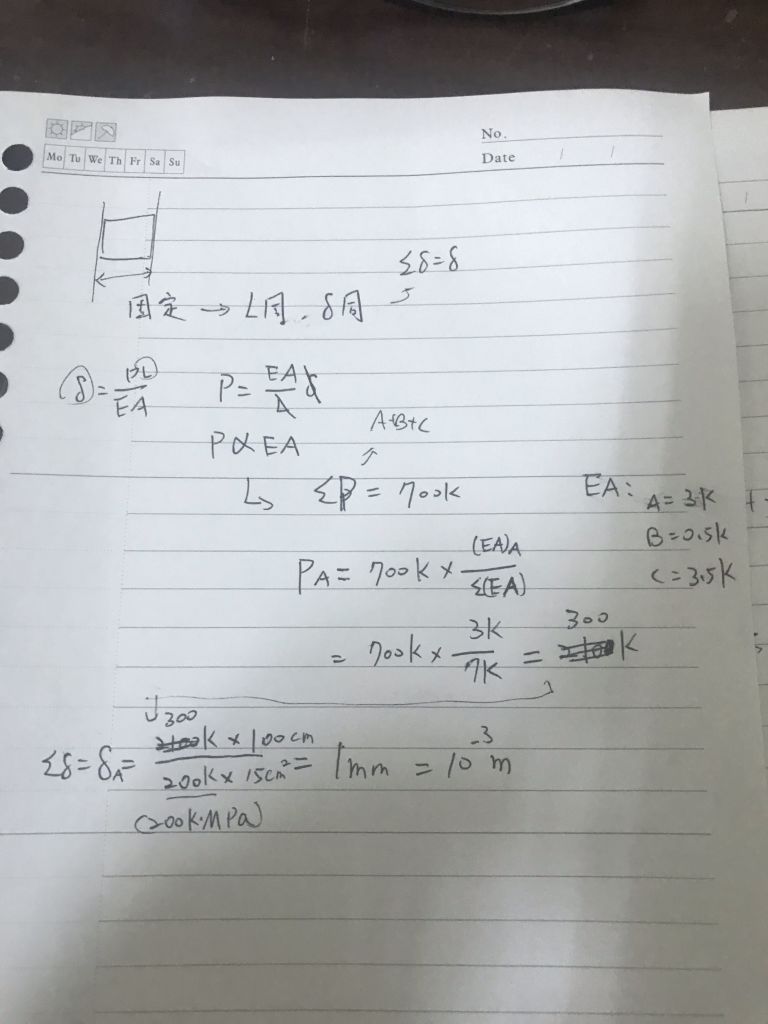 No.
Mo Tu We Th Fr Sa Su
Date / /
Σδ=δ
固定 → L同, δ同
δ = PL/EA P = EA/L δ
P ∝ EA A+B+C
ΣP = 700k EA: A = 3k
B = 0.5k
PA = 700k × (EA)A/Σ(EA) C = 3.5k
= 700k × 3K/7K = 300 k
Σδ = δA = 300 k × 100cm / 200k × 15cm² = 1mm = 10⁻³ m
(200K·MPa)